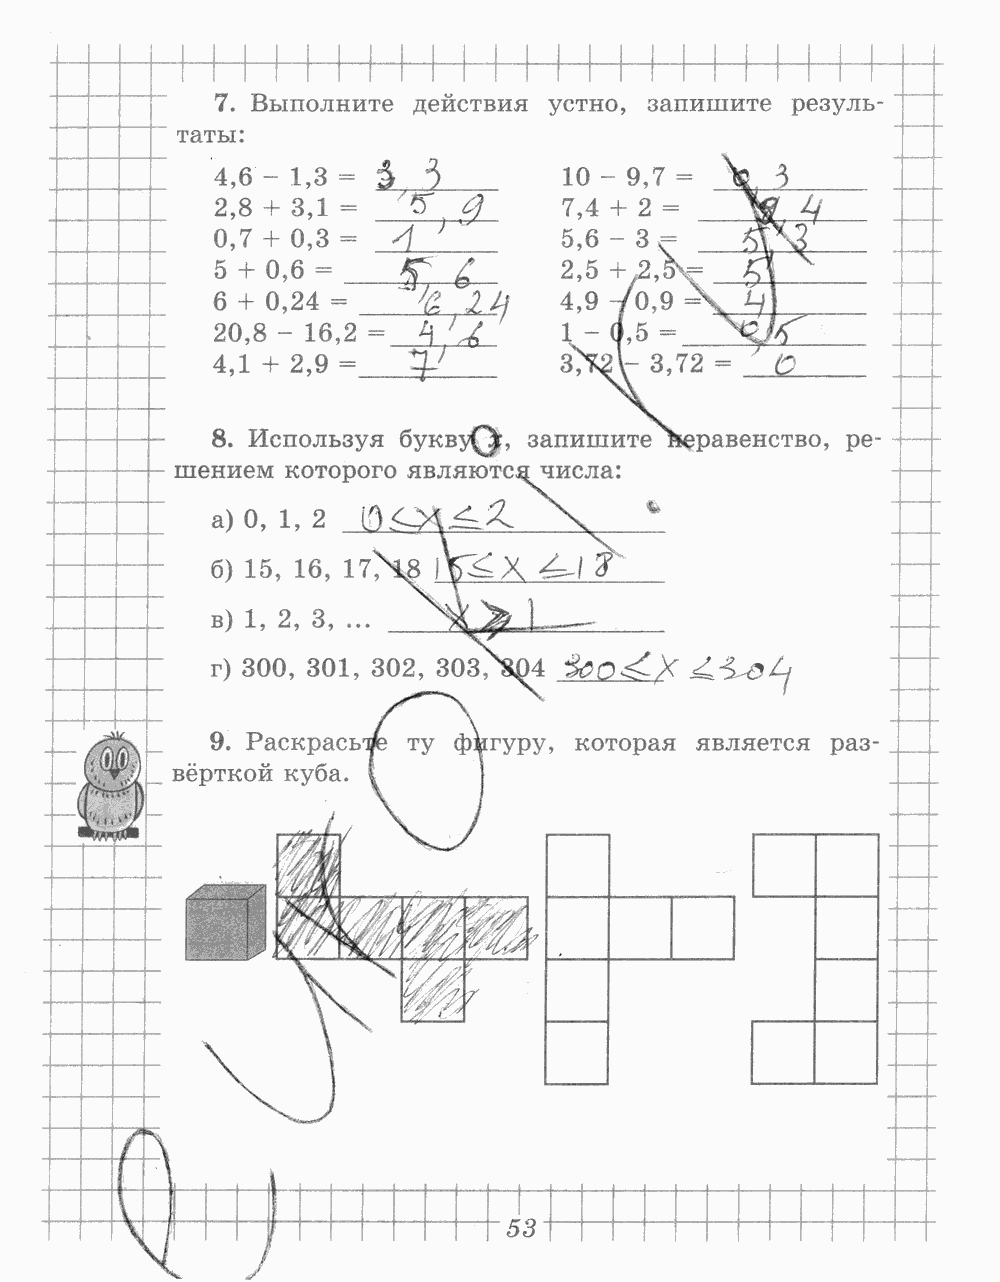 7. Выполните действия устно, запишите резуль-
таты:
4,6 − 1,3 = 3,3
2,8 + 3,1 = 5,9
0,7 + 0,3 = 1
5 + 0,6 = 5,6
6 + 0,24 = 6,24
20,8 − 16,2 = 4,6
4,1 + 2,9 = 7
10 − 9,7 = 0,3
7,4 + 2 = 9,4
5,6 − 3 = 5,3
2,5 + 2,5 = 5
4,9 − 0,9 = 4
1 − 0,5 = 0,5
3,72 − 3,72 = 0
8. Используя букву x, запишите неравенство, ре-
шением которого являются числа:
а) 0, 1, 2 0 ≤ x ≤ 2
б) 15, 16, 17, 18 15 ≤ x ≤ 18
в) 1, 2, 3, ... x ⩾ 1
г) 300, 301, 302, 303, 304 300 ≤ x ≤ 304
9. Раскрасьте ту фигуру, которая является раз-
вёрткой куба.
53